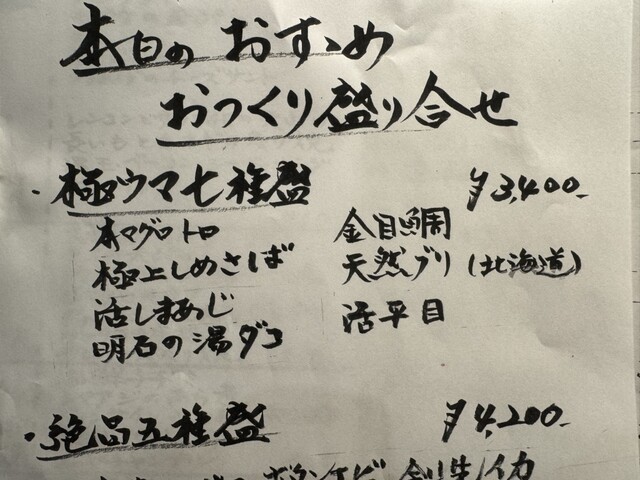 本日の おすゝめ
おつくり盛り合せ
・極ウマ七種盛 ¥3,400-
本マグロトロ 金目鯛
極上しめさば 天然ブリ(北海道)
活しまあじ 活平目
明石の湯ダコ
・絶品五種盛 ¥4,200-
ボタンエビ 剣先イカ